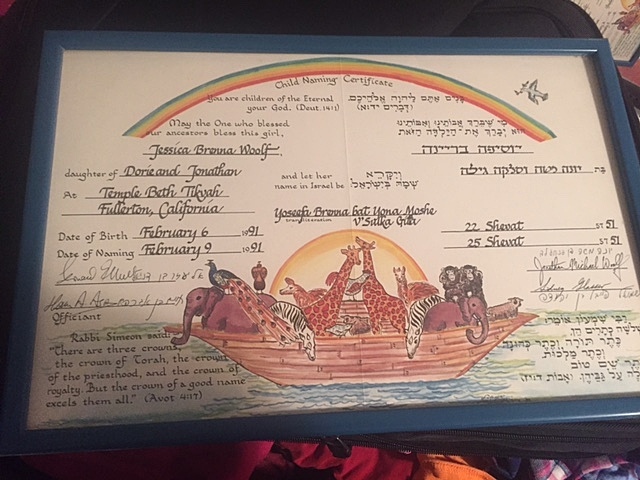 Child Naming Certificate
You are children of the Eternal
your God. (Deut. 14:1)
בנים אתם ליהוה אלהיכם.
May the One who blessed
our ancestors bless this girl,
מי שברך אבותינו ואמותינו
הוא יברך את הילדה הזאת
Jessica Brenna Woolf,
daughter of Dorie and Jonathan
and let her
name in Israel be
ויקרא
שמה בישראל
בת יונה משה וסלקה גילה
At Temple Beth Tikvah
Fullerton, California
Yoseefa Brenna bat Yona Moshe
transliteration V'Salka Gila
Date of Birth February 6 1991
22 Shevat 5751
Date of Naming February 9 1991
25 Shevat 5751
Officiant
Rabbi Simeon said:
"There are three crowns,
the crown of Torah, the crown
of the priesthood, and the crown of
royalty. But the crown of a good name
excels them all." (Avot 4:17)
רבי שמעון אומר
כתר תורה וכתר כהונה
וכתר מלכות
שם טוב